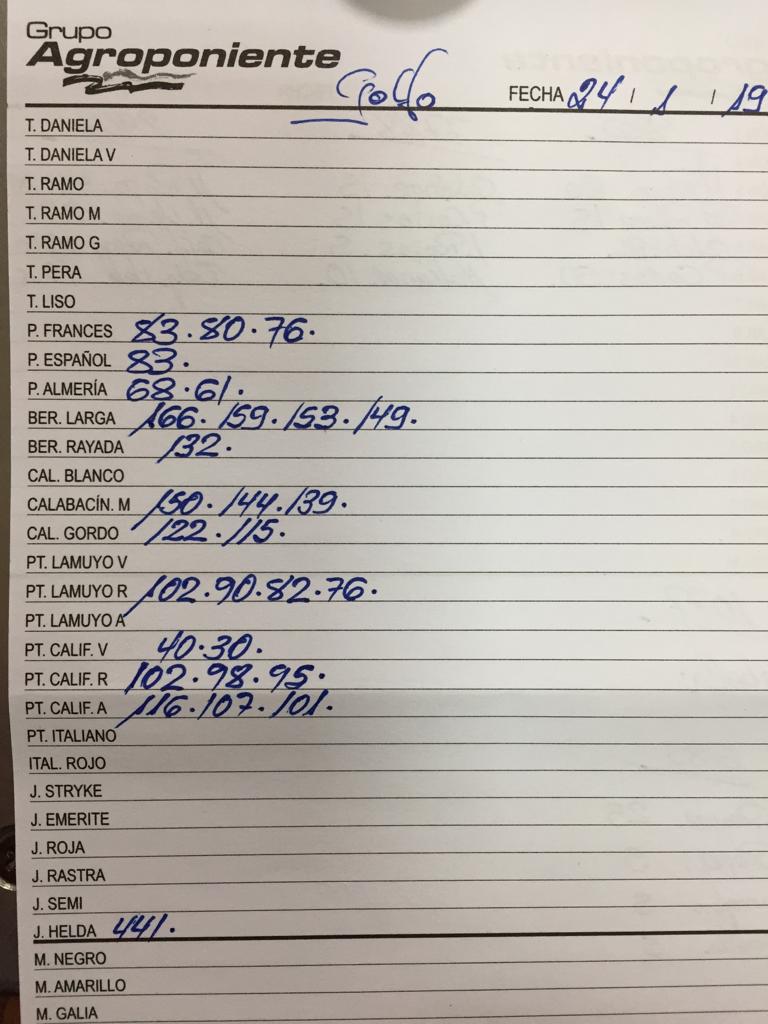 Grupo
Agroponiente
Golfo FECHA 24 / 1 / 19
T. DANIELA
T. DANIELA V
T. RAMO
T. RAMO M
T. RAMO G
T. PERA
T. LISO
P. FRANCES 83.80.76.
P. ESPAÑOL 83.
P. ALMERÍA 68.61.
BER. LARGA 166.159.153.149.
BER. RAYADA 132.
CAL. BLANCO
CALABACÍN. M 150.144.139.
CAL. GORDO 122.115.
PT. LAMUYO V
PT. LAMUYO R 102.90.82.76.
PT. LAMUYO A
PT. CALIF. V 40.30.
PT. CALIF. R 102.98.95.
PT. CALIF. A 116.107.101.
PT. ITALIANO
ITAL. ROJO
J. STRYKE
J. EMERITE
J. ROJA
J. RASTRA
J. SEMI
J. HELDA 441.
M. NEGRO
M. AMARILLO
M. GALIA